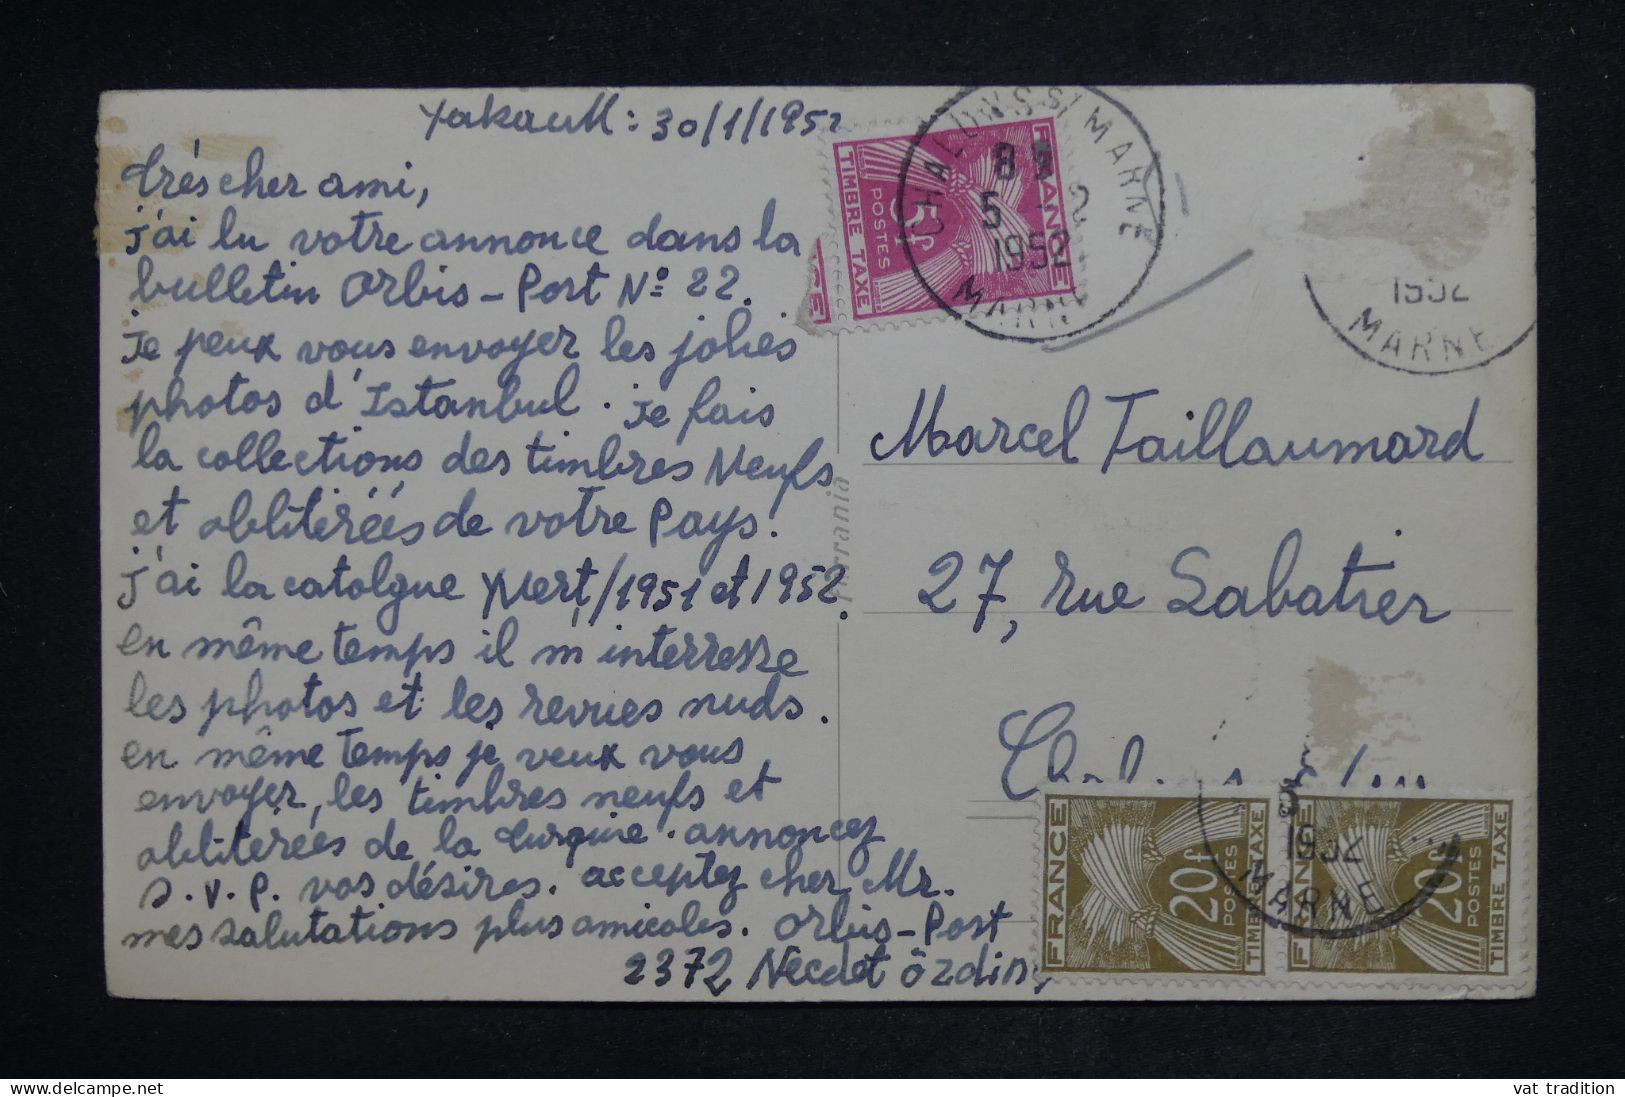 30/1/1952
très cher ami,
j'ai lu votre annonce dans la
bulletin orbis-Post Nº 22.
Je peux vous envoyer les jolies
photos d'Istanbul. Je fais
la collections des timbres Neufs
et oblitérées de votre Pays.
j'ai la catolgue Yvert/1951 et 1952.
en même temps il m'interresse
les photos et les revues nuds.
en même temps je veux vous
envoyer, les timbres neufs et
oblitérées de la turquie. annoncez
s.v.P. vos désires. acceptez cher Mr.
mes salutations plus amicales. orbis-Post
2372 Necdet özdinç
FRANCE
5F
POSTES
TIMBRE TAXE
CHALONS S/ MARNE
8
5 2
1952
MARNE
1952
MARNE
Marcel Taillaumard
27, rue Sabatier
FRANCE
20F
POSTES
TIMBRE TAXE
FRANCE
20F
POSTES
TIMBRE TAXE
1952
MARNE
www.delcampe.net
vat tradition